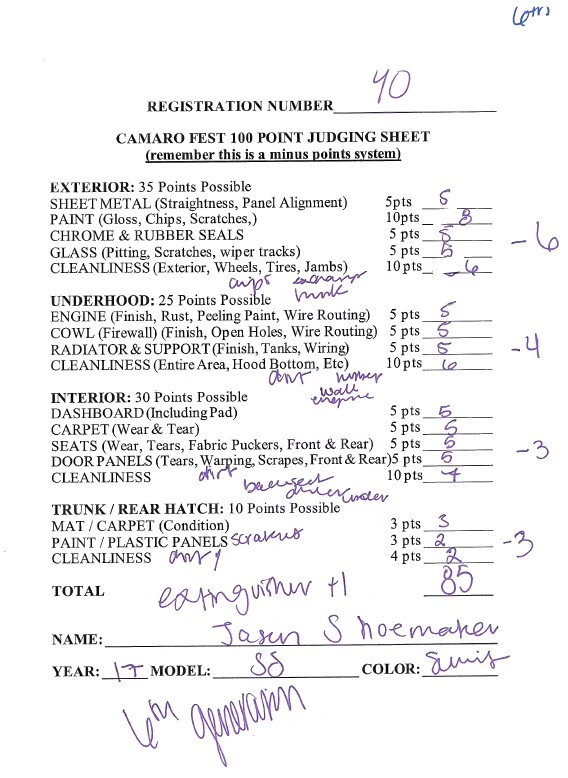 6th
REGISTRATION NUMBER 40
CAMARO FEST 100 POINT JUDGING SHEET
(remember this is a minus points system)
EXTERIOR: 35 Points Possible
SHEET METAL (Straightness, Panel Alignment) 5pts 5
PAINT (Gloss, Chips, Scratches,) 10pts 8
CHROME & RUBBER SEALS 5 pts 5 -6
GLASS (Pitting, Scratches, wiper tracks) 5 pts 5
CLEANLINESS (Exterior, Wheels, Tires, Jambs) 10 pts 6
chips
trunk
UNDERHOOD: 25 Points Possible
ENGINE (Finish, Rust, Peeling Paint, Wire Routing) 5 pts 5
COWL (Firewall) (Finish, Open Holes, Wire Routing) 5 pts 5
RADIATOR & SUPPORT (Finish, Tanks, Wiring) 5 pts 5 -4
CLEANLINESS (Entire Area, Hood Bottom, Etc) 10 pts 6
dirt
wall
engine
INTERIOR: 30 Points Possible
DASHBOARD (Including Pad) 5 pts 5
CARPET (Wear & Tear) 5 pts 5
SEATS (Wear, Tears, Fabric Puckers, Front & Rear) 5 pts 5 -3
DOOR PANELS (Tears, Warping, Scrapes, Front & Rear) 5 pts 5
CLEANLINESS dirt 10 pts 7
driver under
TRUNK / REAR HATCH: 10 Points Possible
MAT / CARPET (Condition) 3 pts 3
PAINT / PLASTIC PANELS scratches 3 pts 2 -3
CLEANLINESS dirty 4 pts 2
TOTAL extinguisher +1 85
NAME: Jason Shoemaker
YEAR: 17 MODEL: SS COLOR:
6th generation